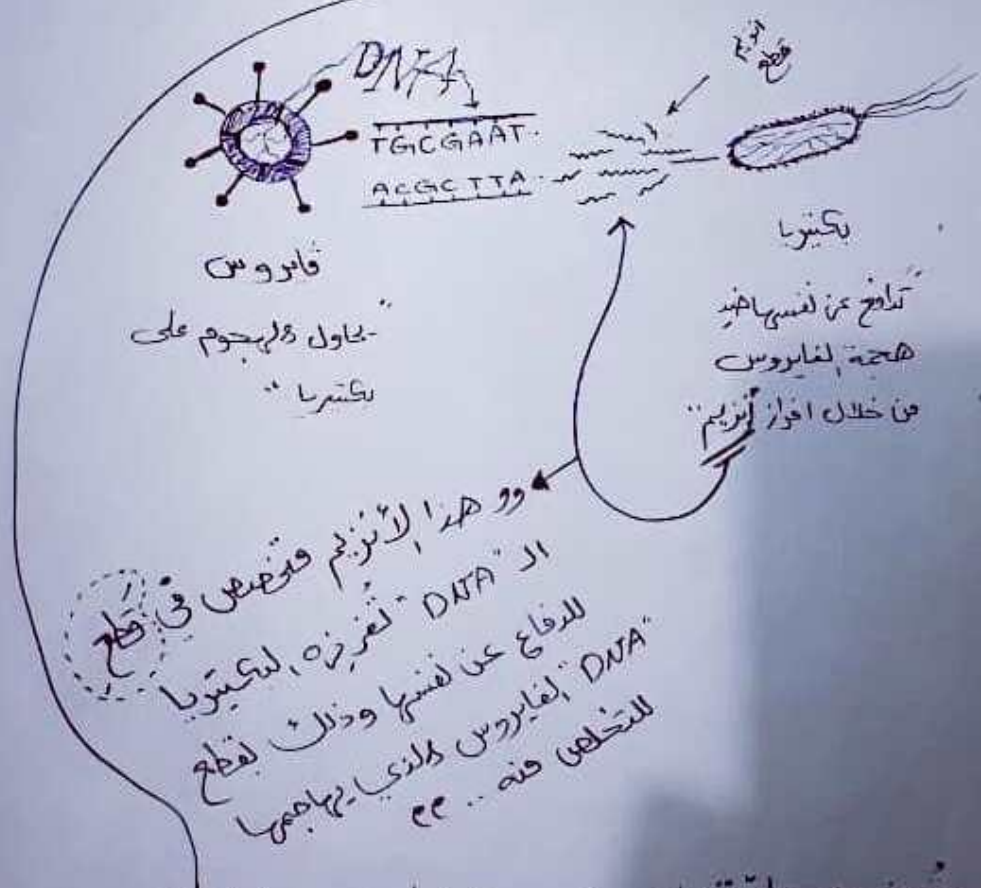 DNA
TGCGAAT
ACGCTTA
انزيم
قطع
ڤايروس
"يحاول الهجوم على
بكتيريا"
بكتيريا
"تدافع عن نفسها ضد
هجمة الفايروس
من خلال افراز أنزيم"
وو هذا الأنزيم متخصص في قطع
الـ "DNA" تُفرزه البكتيريا
للدفاع عن نفسها وذلك بقطع
"DNA" الفايروس الذي يهاجمها
للتخلص منه ..